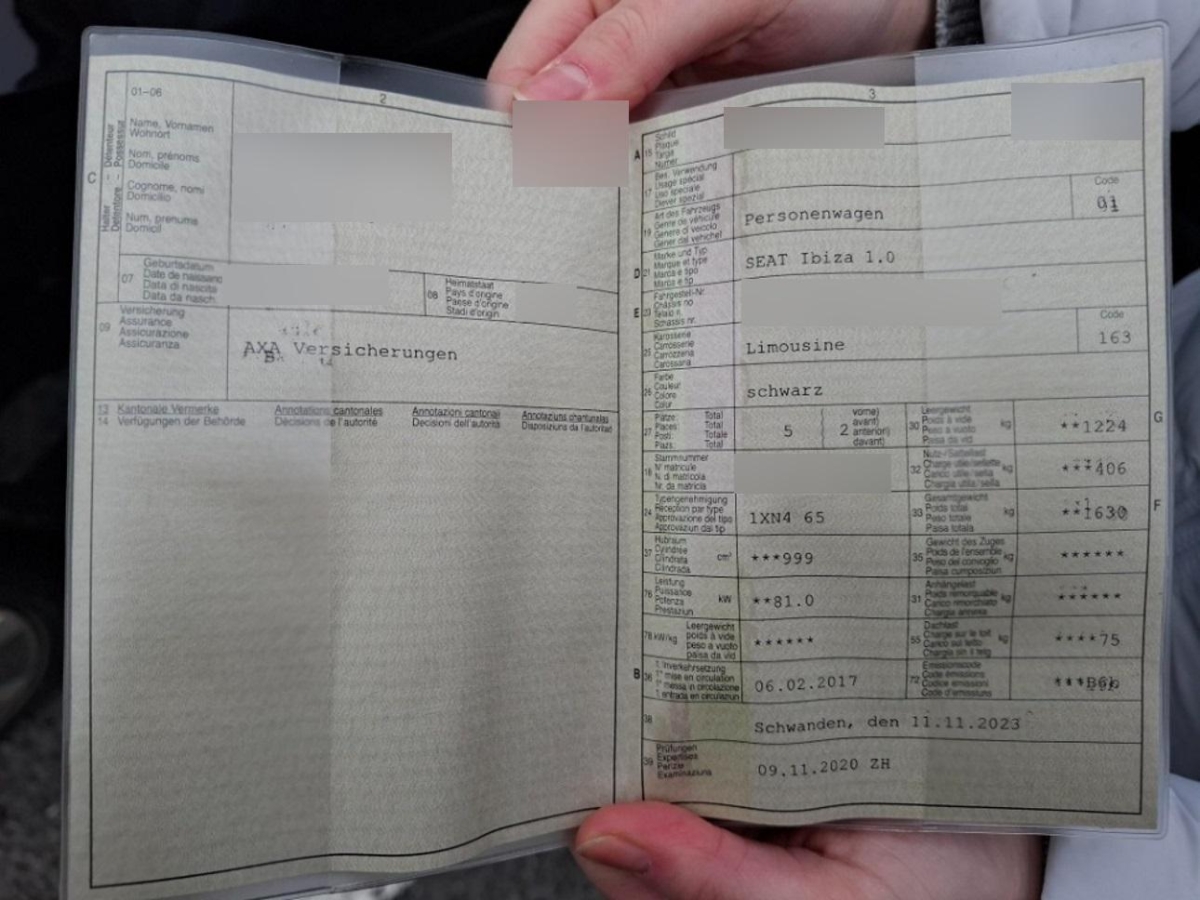 01-06
2
C
Halter - Détenteur
Detentore - Possessur
Name, Vornamen
Wohnort
Nom, prénoms
Domicile
Cognome, nomi
Domicilio
Num, prenums
Domicil
07
Geburtsdatum
Date de naissance
Data di nascita
Data da nasch.
08
Heimatstaat
Pays d'origine
Paese d'origine
Stadi d'origin
09
Versicherung
Assurance
Assicurazione
Assicuranza
AXA Versicherungen
13 Kantonale Vermerke
Annotations cantonales
Annotazioni cantonali
Annotaziuns chantunalas
14 Verfügungen der Behörde
Décisions de l'autorité
Decisioni dell'autorità
Disposiziuns da l'autoritad
3
A 15
Schild
Plaque
Targa
Numer
17
Bes. Verwendung
Usage spécial
Uso speciale
Diever spezial
19
Art des Fahrzeugs
Genre de véhicule
Genere di veicolo
Gener dal vehichel
Personenwagen
Code
01
D 21
Marke und Typ
Marque et type
Marca e tipo
Marca e tip
SEAT Ibiza 1.0
E 23
Fahrgestell-Nr.
Châssis no
Telaio n.
Schassis nr.
25
Karosserie
Carrosserie
Carrozzeria
Carossaria
Limousine
Code
163
26
Farbe
Couleur
Colore
Colur
schwarz
27
Plätze: Total
Places: Total
Posti: Totale
Plazs: Total
5
2
vorne)
avant)
anteriori)
davant)
30
Leergewicht
Poids à vide
Peso a vuoto
Paisa da vid
kg
**1224
G
18
Stammnummer
N° matricule
N. di matricola
Nr. da matricla
32
Nutz-/Sattellast
Charge utile/sellette
Carico utile/sella
Chargia utila/sella
kg
***406
24
Typengenehmigung
Réception par type
Approvazione del tipo
Approvaziun dal tip
1XN4 65
33
Gesamtgewicht
Poids total
Peso totale
Paisa totala
kg
**1630
F
37
Hubraum
Cylindrée
Cilindrata
Cilindrada
cm³
***999
35
Gewicht des Zuges
Poids de l'ensemble
Peso del convoglio
Paisa cumposiziun
kg
******
76
Leistung
Puissance
Potenza
Prestaziun
kW
**81.0
31
Anhängelast
Poids remorquable
Carico rimorchiato
Chargia annexa
kg
******
78 kW/kg
Leergewicht
poids à vide
peso a vuoto
paisa da vid
******
55
Dachlast
Charge sur le toit
Carico sul tetto
Chargia sin il tetg
kg
****75
B 36
1. Inverkehrsetzung
1re mise en circulation
1a messa in circolazione
1. entrada en circulaziun
06.02.2017
72
Emissionscode
Code émissions
Codice emissioni
Code d'emissiuns
***B6b
38
Schwanden, den 11.11.2023
39
Prüfungen
Expertises
Perizie
Examinaziuns
09.11.2020 ZH